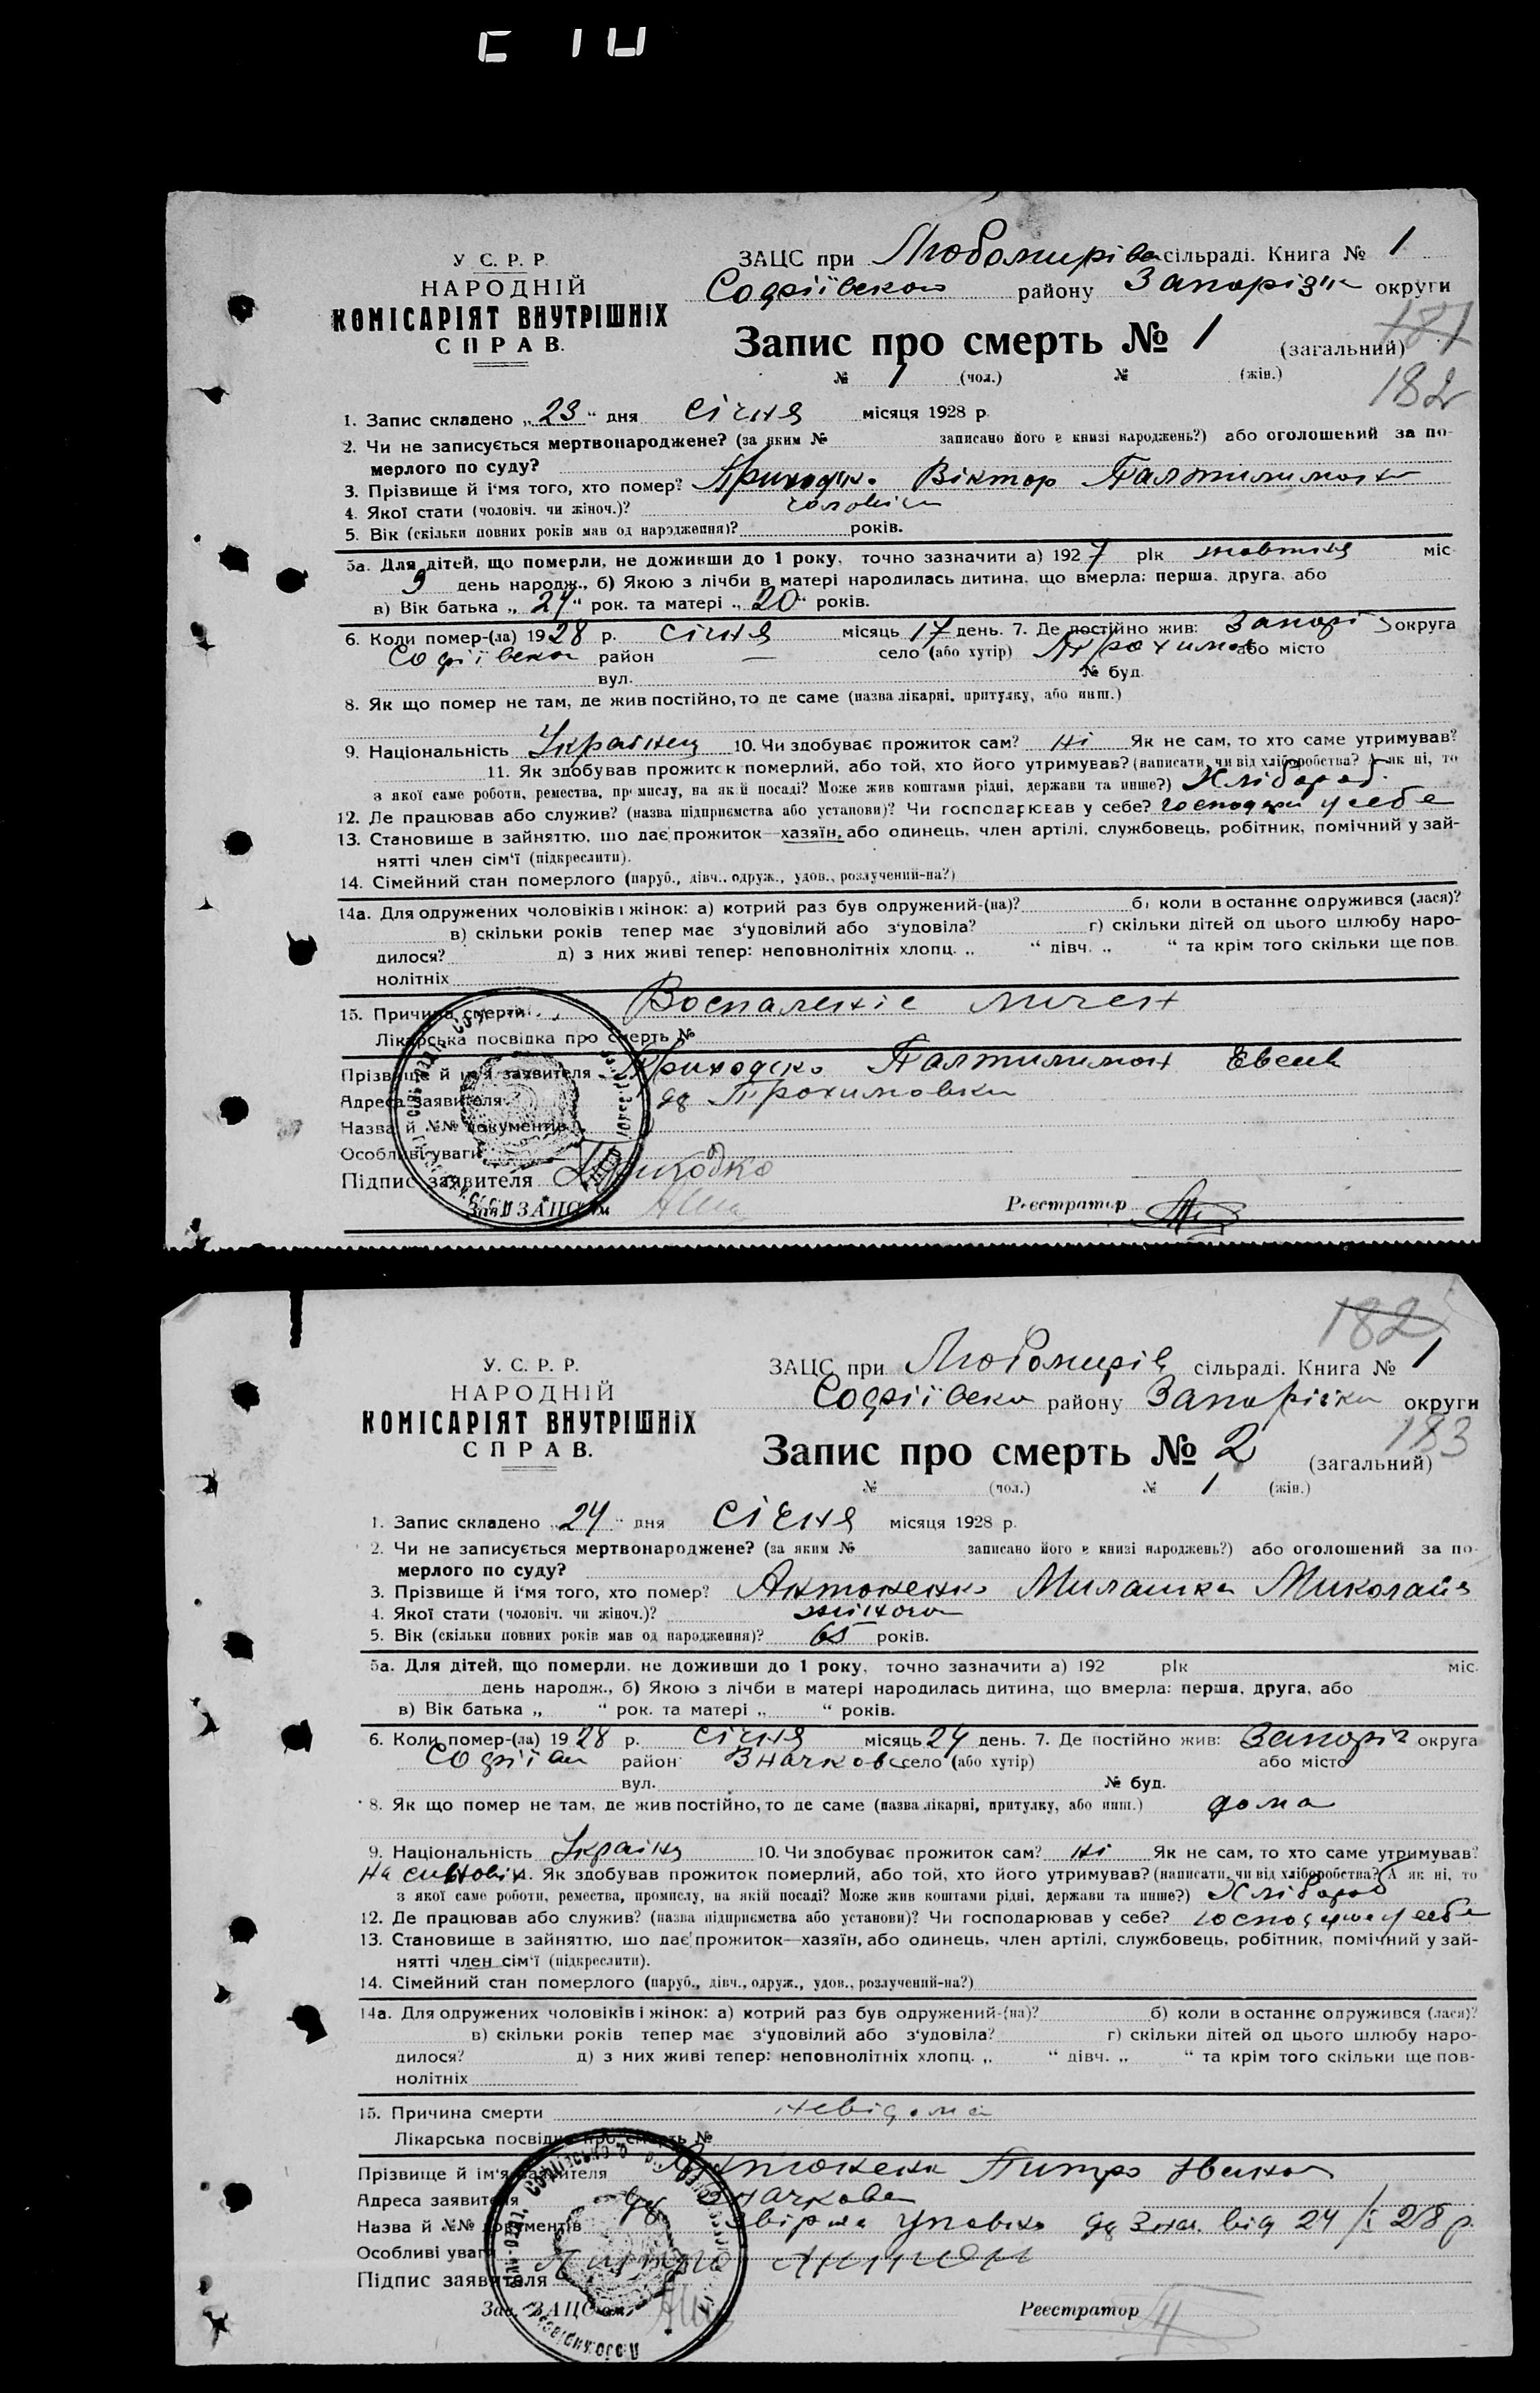 У. С. Р. Р.
НАРОДНІЙ
КОМІСАРІЯТ ВНУТРІШНІХ
СПРАВ.
ЗАЦС при Любомирівск сільраді. Книга № 1
Софіївською району Запорізьк округи
Запис про смерть № 1 (загальний) 181
№ 1 (чол.) № (жін.) 182
1. Запис складено „ 23 “ дня січня місяця 1928 р.
2. Чи не записується мертвонароджене? (за яким № записано його в книзі народжень?) або оголошений за по-
мерлого по суду?
3. Прізвище й і'мя того, хто помер? Приходько Віктор Палтилимон
4. Якої стати (чоловіч. чи жіноч.)? чоловіч
5. Вік (скільки повних років мав од народження)? років.
5а. Для дітей, що померли, не доживши до 1 року, точно зазначити а) 1927 рік жовтня міс.
9 день народж., б) Якою з лічби в матері народилась дитина, що вмерла: перша, друга, або
в) Вік батька „ 24 “ рок. та матері „ 20 “ років.
6. Коли помер-(ла) 1928 р. січня місяць 17 день. 7. Де постійно жив: Запоріз округа
Софіївськ район — село (або хутір) або місто
вул. № буд.
8. Як що помер не там, де жив постійно, то де саме (назва лікарні, притулку, або инш.)
9. Національність Українец 10. Чи здобуває прожиток сам? ні Як не сам, то хто саме утримував?
11. Як здобував прожиток померлий, або той, хто його утримував? (написати, чи від хліборобства? А як ні, то
з якої саме роботи, ремества, промислу, на якій посаді? Може жив коштами рідні, держави та инше?) Хлібороб.
12. Де працював або служив? (назва підприємства або установи)? Чи господарював у себе? господарш у себе
13. Становище в зайняттю, що дає прожиток—хазяїн, або одинець, член артілі, службовець, робітник, помічний у зай-
нятті член сім'ї (підкреслити).
14. Сімейний стан померлого (паруб., дівч., одруж., удов., розлучений-на?)
14а. Для одружених чоловіків і жінок: а) котрий раз був одружений-(на)? б) коли в останнє одружився (лася)?
в) скільки років тепер має з'удовілий або з'удовіла? г) скільки дітей од цього шлюбу наро-
дилося? д) з них живі тепер: неповнолітніх хлопц. „ “ дівч. „ “ та крім того скільки ще пов-
нолітніх
15. Причина смерти Воспаленіе
Лікарська посвідка про смерть №
Прізвище й ім'я заявителя Приходько Палтилимон Евсев
Адреса заявителя дер Трохимовки
Назва й №№ документів
Особливі уваги
Підпис заявителя Приходко
Зав. ЗАЦС'ом Реєстратор
182
У. С. Р. Р.
НАРОДНІЙ
КОМІСАРІЯТ ВНУТРІШНІХ
СПРАВ.
ЗАЦС при Любомирів сільраді. Книга № 1
Софіївськ району Запорізьк округи
Запис про смерть № 2 (загальний) 183
№ (чол.) № 1 (жін.)
1. Запис складено „ 24 “ дня січня місяця 1928 р.
2. Чи не записується мертвонароджене? (за яким № записано його в книзі народжень?) або оголошений за по-
мерлого по суду?
3. Прізвище й і'мя того, хто помер? Антоненко Милашка Миколаїв
4. Якої стати (чоловіч. чи жіноч.)? жіноча
5. Вік (скільки повних років мав од народження)? 65 років.
5а. Для дітей, що померли, не доживши до 1 року, точно зазначити а) 192 рік міс.
день народж., б) Якою з лічби в матері народилась дитина, що вмерла: перша, друга, або
в) Вік батька „ “ рок. та матері „ “ років.
6. Коли помер-(ла) 1928 р. січня місяць 24 день. 7. Де постійно жив: Запоріз округа
район Значков село (або хутір) або місто
вул. № буд.
8. Як що помер не там, де жив постійно, то де саме (назва лікарні, притулку, або инш.) дома
9. Національність Українц 10. Чи здобуває прожиток сам? ні Як не сам, то хто саме утримував?
на синовіх. Як здобував прожиток померлий, або той, хто його утримував? (написати, чи від хліборобства? А як ні, то
з якої саме роботи, ремества, промислу, на якій посаді? Може жив коштами рідні, держави та инше?) Хлібороб
12. Де працював або служив? (назва підприємства або установи)? Чи господарював у себе? у себе
13. Становище в зайняттю, що дає прожиток—хазяїн, або одинець, член артілі, службовець, робітник, помічний у зай-
нятті член сім'ї (підкреслити).
14. Сімейний стан померлого (паруб., дівч., одруж., удов., розлучений-на?)
14а. Для одружених чоловіків і жінок: а) котрий раз був одружений-(на)? б) коли в останнє одружився (лася)?
в) скільки років тепер має з'удовілий або з'удовіла? г) скільки дітей од цього шлюбу наро-
дилося? д) з них живі тепер: неповнолітніх хлопц. „ “ дівч. „ “ та крім того скільки ще пов-
нолітніх
15. Причина смерти невідома
Лікарська посвідка про смерть №
Прізвище й ім'я заявителя Антоненко Питро Іванов
Адреса заявителя дер. Значкова
Назва й №№ документів дер Знач. від 24/I 28 р.
Особливі уваги
Підпис заявителя Питро Антон
Зав. ЗАЦС'ом Реєстратор